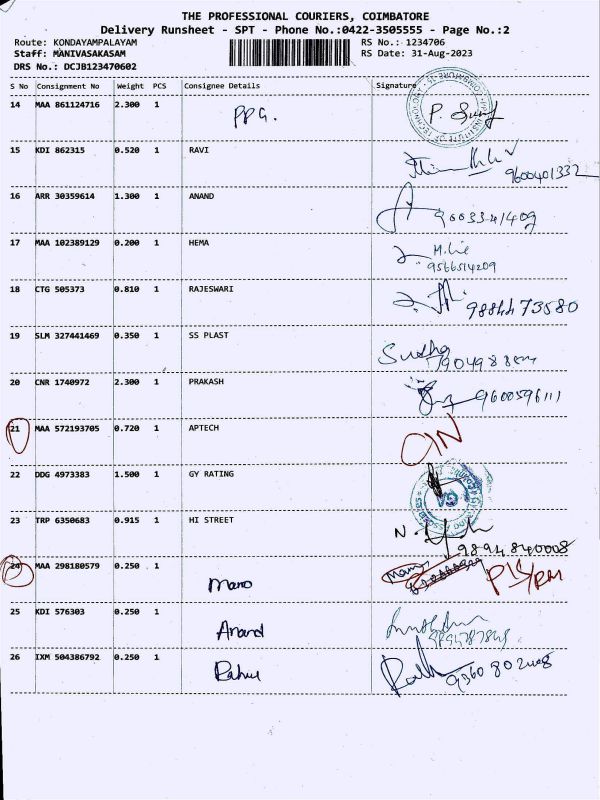 THE PROFESSIONAL COURIERS, COIMBATORE
Delivery Runsheet - SPT - Phone No.:0422-3505555 - Page No.:2
Route: KONDAYAMPALAYAM RS No.: 1234706
Staff: MANIVASAKASAM RS Date: 31-Aug-2023
DRS No.: DCJB123470602
S No Consignment No Weight PCS Consignee Details Signature
14 MAA 861124716 2.300 1 PPG.
15 KDI 862315 0.520 1 RAVI
9600401332
16 ARR 30359614 1.300 1 ANAND
9003341409
17 MAA 102389129 0.200 1 HEMA
9566514209
18 CTG 505373 0.810 1 RAJESWARI
9884473580
19 SLM 327441469 0.350 1 SS PLAST
Sudha
20 CNR 1740972 2.300 1 PRAKASH
9600596111
21 MAA 572193705 0.720 1 APTECH
22 DDG 4973383 1.500 1 GY RATING
23 TRP 6350683 0.915 1 HI STREET
9894840008
24 MAA 298180579 0.250 1 Mano
25 KDI 576303 0.250 1 Anand
26 IXM 504386792 0.250 1 Rahul